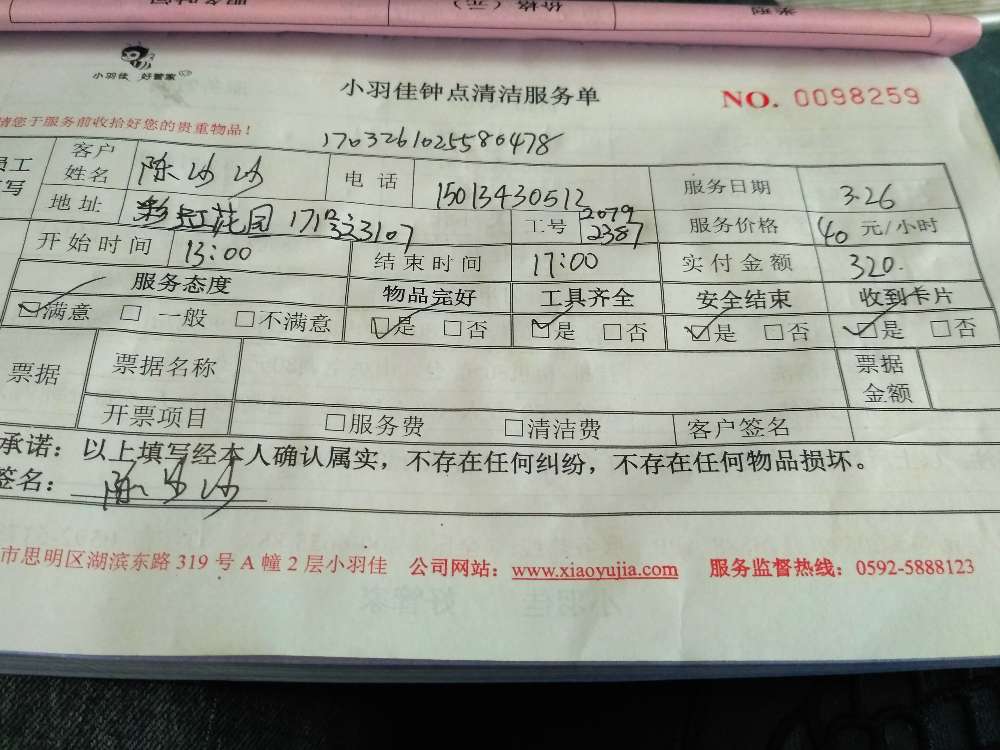 服务时间 价格（元） 类型
小羽佳 好管家
小羽佳钟点清洁服务单 NO. 0098259
请您于服务前收拾好您的贵重物品！
1703261025580478
员工 客户姓名 陈沙沙 电话 15013430512 服务日期 3.26
写 地址 彩虹花园 3107 工号 2079 2387 服务价格 40 元/小时
开始时间 13:00 结束时间 17:00 实付金额 320.
服务态度 物品完好 工具齐全 安全结束 收到卡片
☑满意 □ 一般 □不满意 ☑是 □否 ☑是 □否 ☑是 □否 ☑是 □否
票据 票据名称 票据金额
开票项目 □服务费 □清洁费 客户签名
承诺：以上填写经本人确认属实，不存在任何纠纷，不存在任何物品损坏。
签名： 陈沙沙
市思明区湖滨东路 319 号 A 幢 2 层小羽佳 公司网站：www.xiaoyujia.com 服务监督热线：0592-5888123